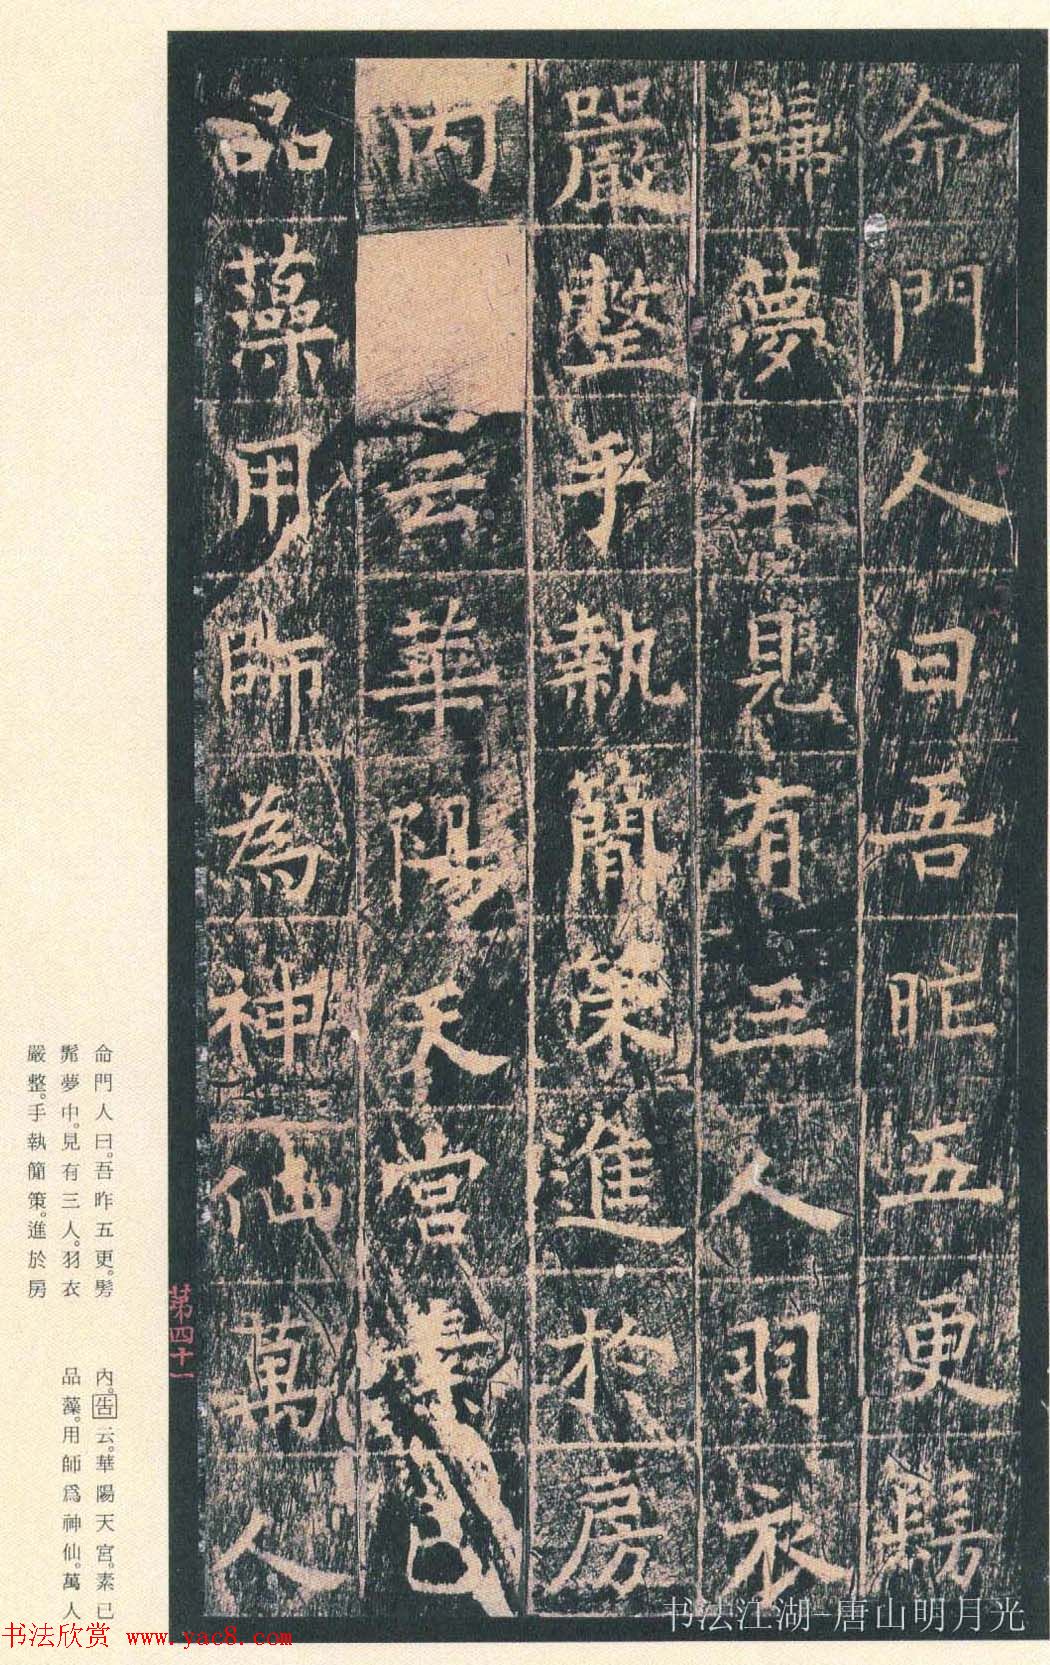 命門人曰吾昨五更髣
髴夢中見有三人羽衣
嚴整手執簡策進於房
内云華陽天宮素已
品藻用師為神仙萬人
命門人曰。吾昨五更。髣
髴夢中。見有三人。羽衣
嚴整。手執簡策。進於房
内。告云。華陽天宮。素已
品藻。用師爲神仙。萬人
第四十一
书法江湖-唐山明月光
书法欣赏 www.yac8.com